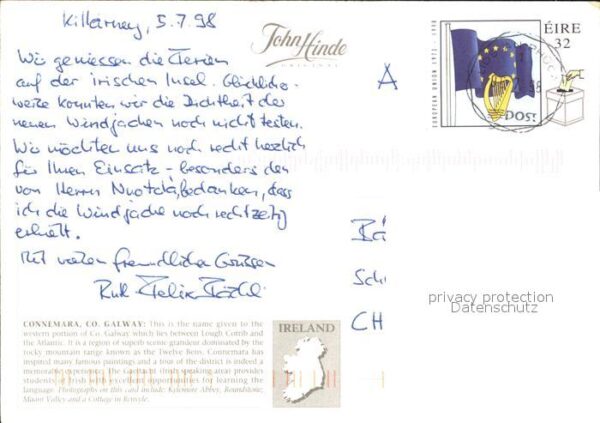 Killarney, 5.7.98
Wir geniessen die Ferien
auf der irischen Insel. Glücklicher-
weise konnten wir die Dichtheit der
neuen Windjacken noch nicht testen.
Wir möchten uns noch recht herzlich
für Ihren Einsatz - besonders den
von Herrn bedanken, dass
ich die Windjacke noch rechtzeitig
erhielt.
Mit vielen freundlichen Grüssen
Felix
John Hinde
ORIGINAL
A
EUROPEAN UNION 1973-1998
ÉIRE
32
POST
Bä
Sch
CH
privacy protection
Datenschutz
CONNEMARA, CO. GALWAY: This is the name given to the
western portion of Co. Galway which lies between Lough Corrib and
the Atlantic. It is a region of superb scenic grandeur dominated by the
rocky mountain range known as the Twelve Bens. Connemara has
inspired many famous paintings and a tour of the district is indeed a
memorable experience. The Gaeltacht (Irish speaking area) provides
students of Irish with excellent opportunities for learning the
language. Photographs on this card include: Kylemore Abbey, Roundstone;
Maam Valley and a Cottage in Renvyle.
IRELAND